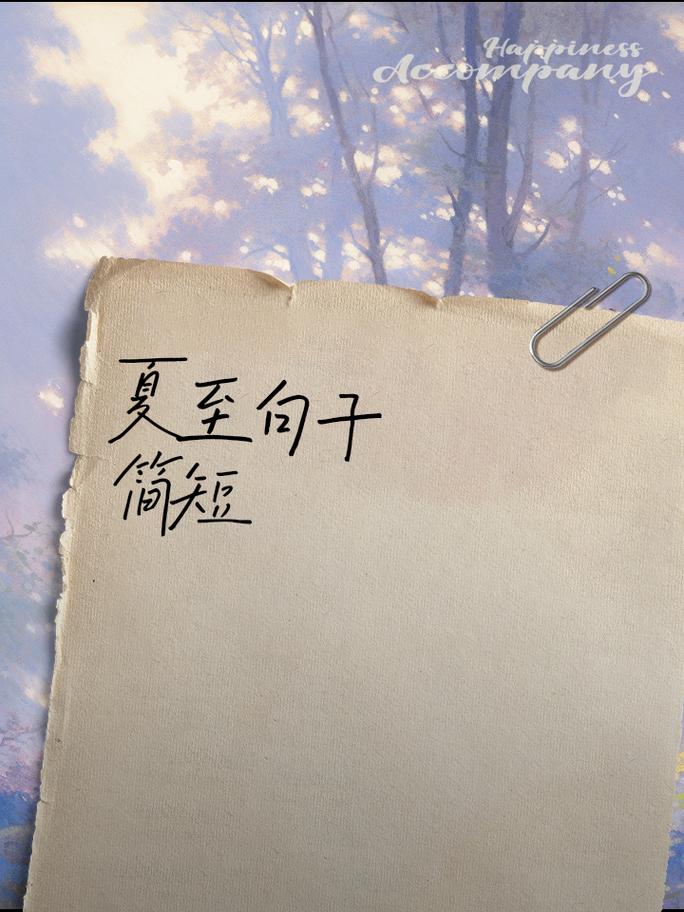 Happiness
Accompany
夏至句子
简短